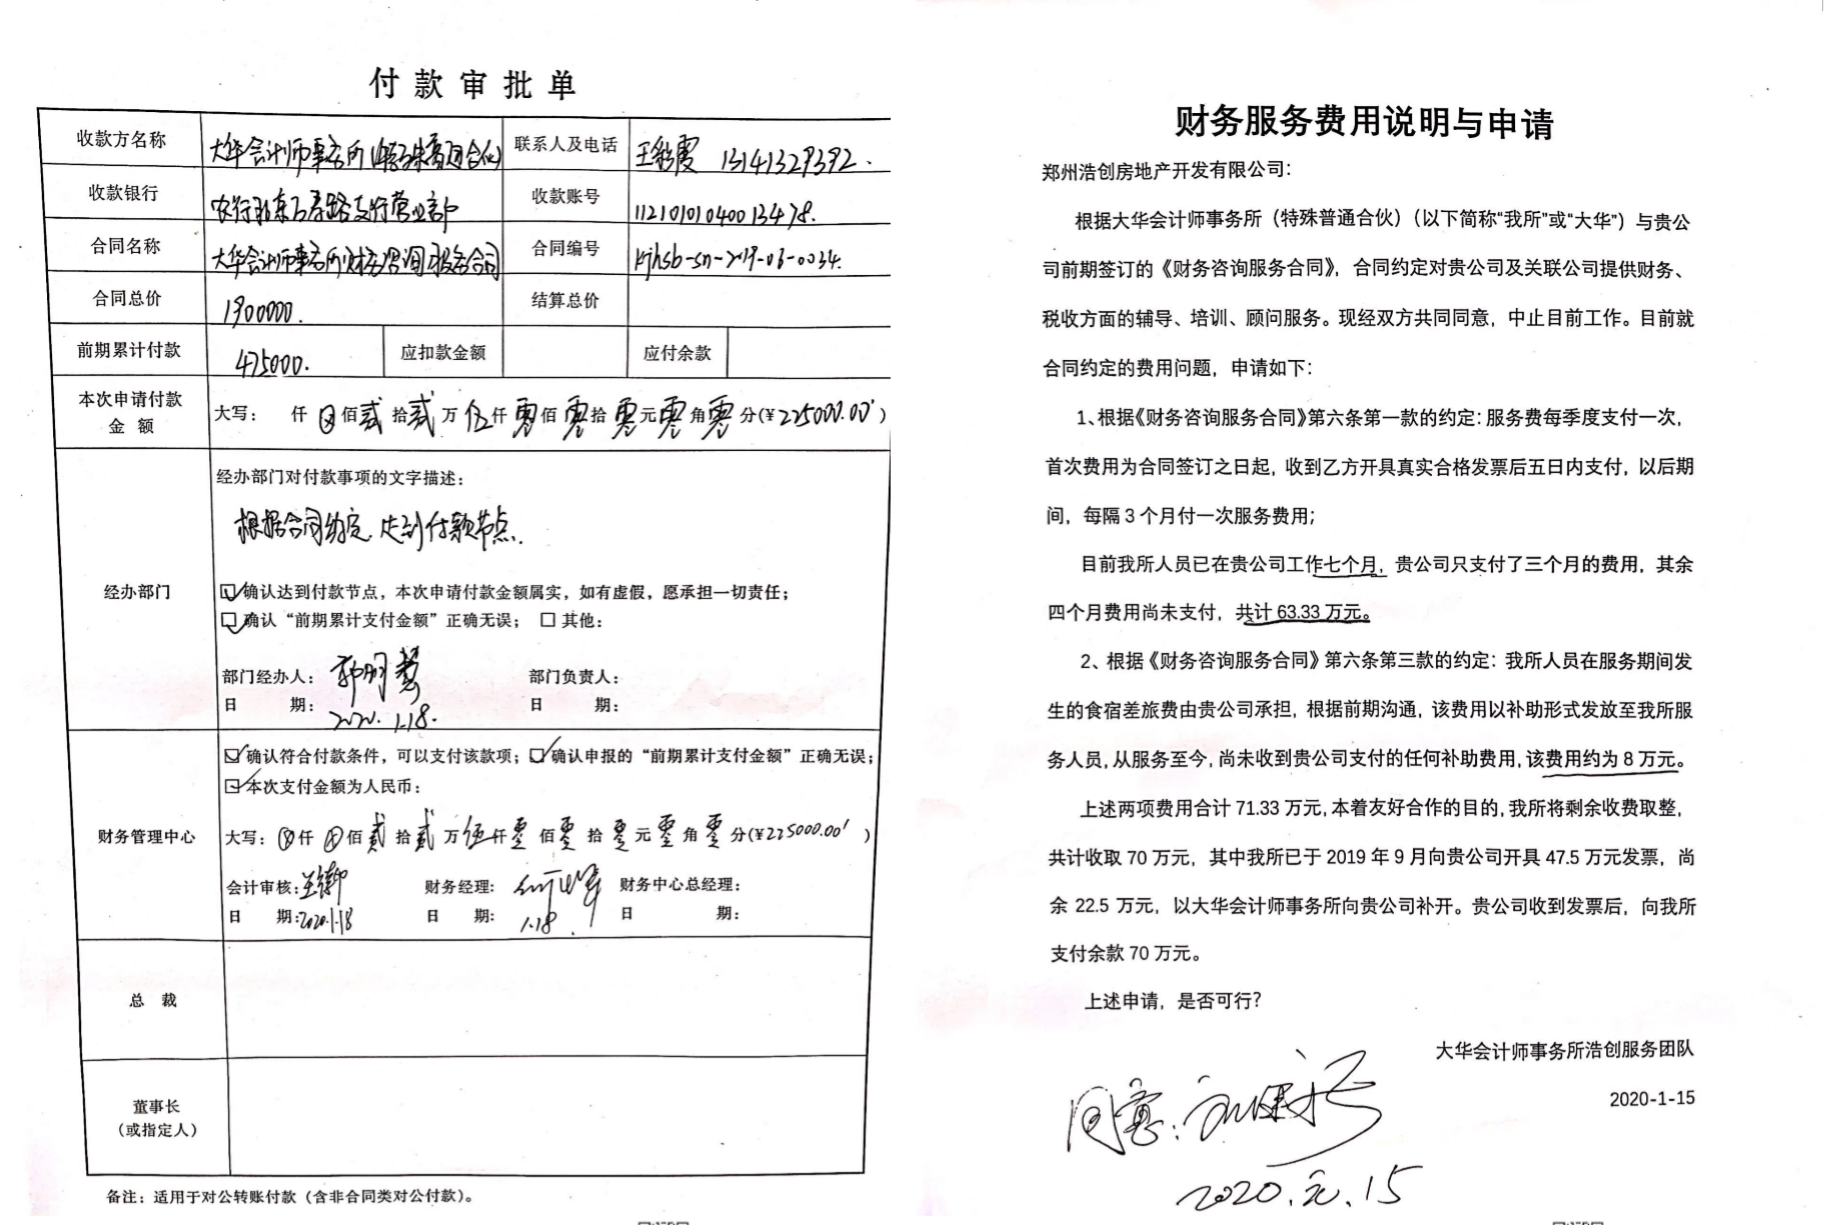 付款审批单
收款方名称 大华会计师事务所(特殊普通合伙) 联系人及电话 王彩霞 13141329392.
收款银行 农行北京万寿路支行营业部 收款账号 11210101040013478.
合同名称 大华会计师事务所财务咨询服务合同 合同编号 kjhsb-sn-2019-06-0034.
合同总价 1900000. 结算总价
前期累计付款 475000. 应扣款金额 应付余款
本次申请付款
金 额
大写: 仟⊗佰贰拾贰万伍仟零佰零拾零元零角零分(¥225000.00)
经办部门
经办部门对付款事项的文字描述:
根据合同约定,达到付款节点.
☑确认达到付款节点,本次申请付款金额属实,如有虚假,愿承担一切责任;
☑确认“前期累计支付金额”正确无误; ☐其他:
部门经办人: 部门负责人:
日 期: 2020.1.18. 日 期:
财务管理中心
☑确认符合付款条件,可以支付该款项; ☑确认申报的“前期累计支付金额”正确无误;
☑本次支付金额为人民币:
大写: ⊗仟⊗佰贰拾贰万伍仟零佰零拾零元零角零分(¥225000.00)
会计审核: 财务经理: 财务中心总经理:
日 期:2020.1.18 日 期: 1.18. 日 期:
总 裁
董事长
(或指定人)
备注:适用于对公转账付款(含非合同类对公付款)。
财务服务费用说明与申请
郑州浩创房地产开发有限公司:
根据大华会计师事务所(特殊普通合伙)(以下简称“我所”或“大华”)与贵公
司前期签订的《财务咨询服务合同》,合同约定对贵公司及关联公司提供财务、
税收方面的辅导、培训、顾问服务。现经双方共同同意,中止目前工作。目前就
合同约定的费用问题,申请如下:
1、根据《财务咨询服务合同》第六条第一款的约定:服务费每季度支付一次,
首次费用为合同签订之日起,收到乙方开具真实合格发票后五日内支付,以后期
间,每隔3个月付一次服务费用;
目前我所人员已在贵公司工作七个月,贵公司只支付了三个月的费用,其余
四个月费用尚未支付,共计63.33万元。
2、根据《财务咨询服务合同》第六条第三款的约定:我所人员在服务期间发
生的食宿差旅费由贵公司承担,根据前期沟通,该费用以补助形式发放至我所服
务人员,从服务至今,尚未收到贵公司支付的任何补助费用,该费用约为8万元。
上述两项费用合计71.33万元,本着友好合作的目的,我所将剩余收费取整,
共计收取70万元,其中我所已于2019年9月向贵公司开具47.5万元发票,尚
余22.5万元,以大华会计师事务所向贵公司补开。贵公司收到发票后,向我所
支付余款70万元。
上述申请,是否可行?
大华会计师事务所浩创服务团队
2020-1-15
同意:
2020.元.15